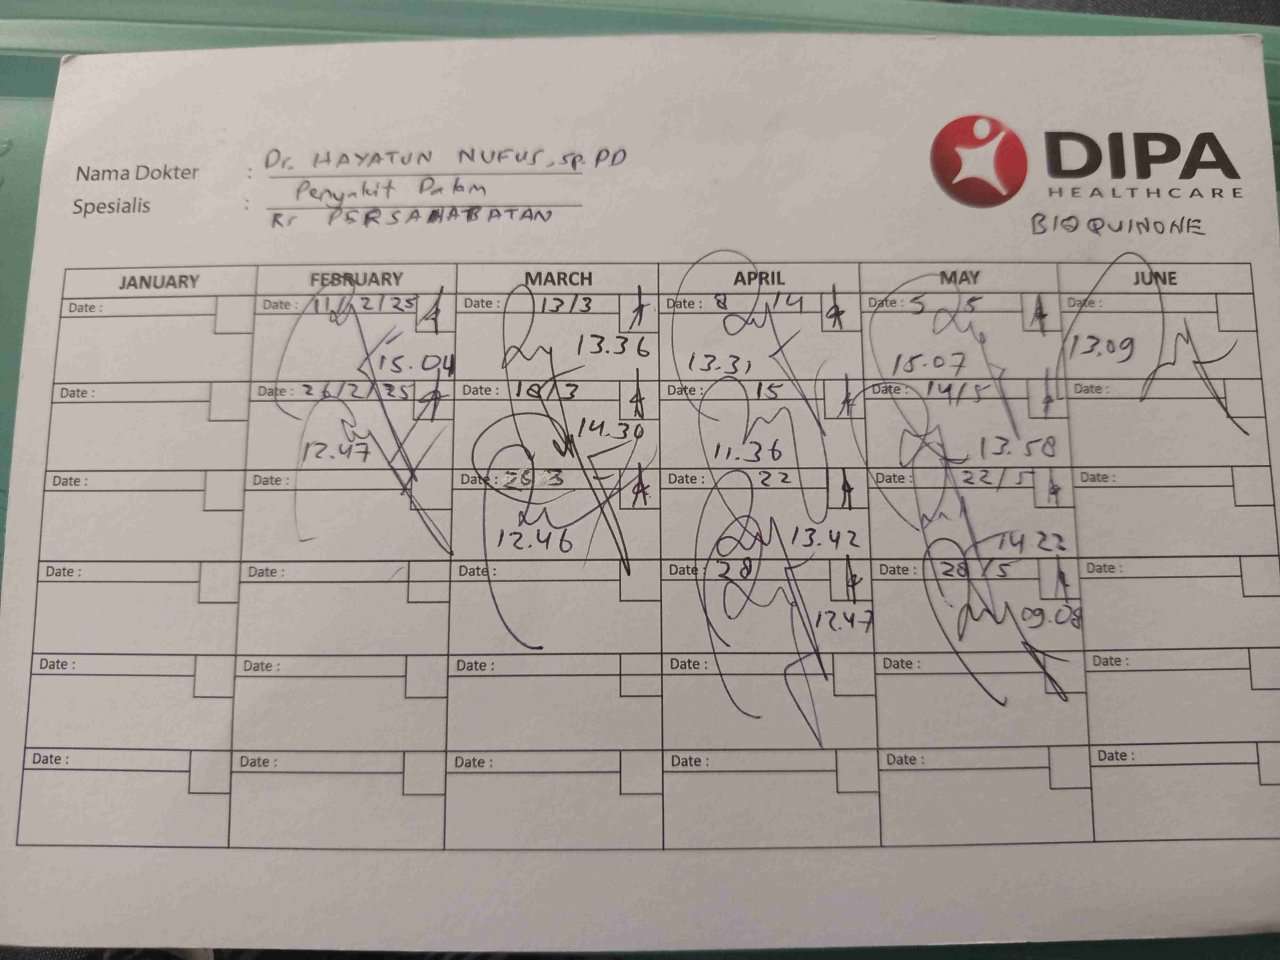 Nama Dokter : Dr. HAYATUN NUFUS, Sp.PD
Spesialis : Penyakit Dalam
RS PERSAHABATAN
DIPA
HEALTHCARE
BIO QUINONE
JANUARY FEBRUARY MARCH APRIL MAY JUNE
Date : Date : 11/2/25 Date : 13/3 Date : 8/4 Date : 5/5 Date :
15.04 13.36 13.31 15.07 13.09
Date : Date : 26/2/25 Date : 18/3 Date : 15 Date : 14/5 Date :
12.47 14.30 11.36 13.58
Date : Date : Date : 26 3 Date : 22 Date : 22/5 Date :
12.46 13.42 14 22
Date : Date : Date : Date : 28 Date : 28/5 Date :
12.47 09.08
Date : Date : Date : Date : Date : Date :
Date : Date : Date : Date : Date : Date :